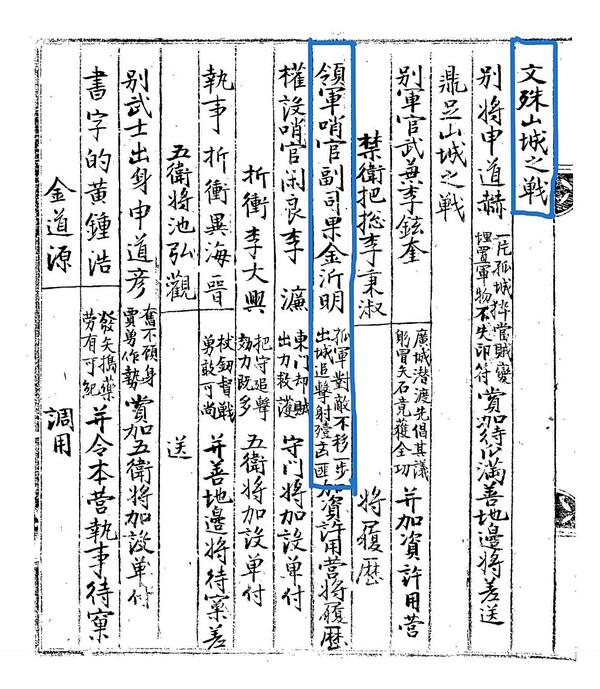 文殊山城之戰
別將申道赫 一片孤城猝當賊變 埋置軍物不失印符 賞加待瓜滿善地邊將差送
鼎足山城之戰
別軍官武兼李鉉奎 廣城潛渡先倡其議 躬冒矢石竟獲全功 并加資許用營
禁衛把摠李秉淑 將履歷
領軍哨官副司果金沂明 孤軍對敵不移一步 出城追擊射殪凶匪 加資許用營將履歷
權設哨官闲良李濂 東门却賊 出力救護 守门將加設單付
折衝李大興 把守追擊 効力既多 五衛將加設單付
執事 折衝異海晋 杖釼督戰 勇敢可尚 并善地邊將待窠差
五衛將池弘觀 送
別武士出身申道彦 奮不顧身 賈勇作勢 賞加五衛將加設單付
書字的黃鍾浩 發矢搗藥 劳有可紀 并令本營執事待窠
金道源 調用